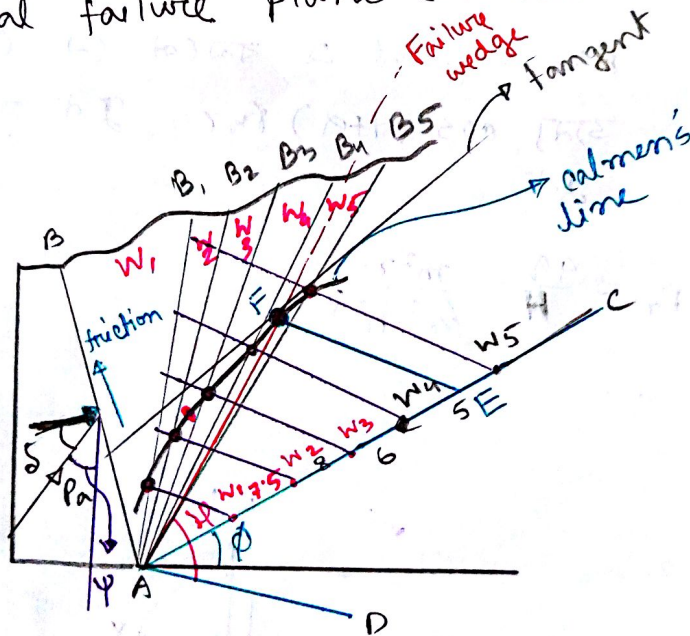 al failure plane
Failure
wedge
Tangent
calmen's
line
B
B1
B2
B3
B4
B5
W1
W2
W3
W4
W5
friction
F
H
C
W5
W4
5
E
W3
6
W2
8
W1
7.5
δ
Pa
ψ
ψ
φ
A
D